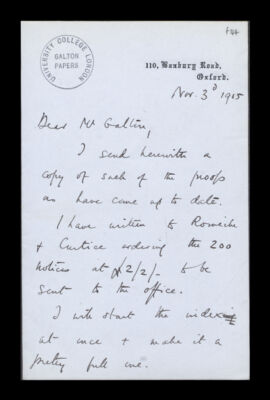 UNIVERSITY COLLEGE LONDON
GALTON
PAPERS
110, Banbury Road,
Oxford.
Nov. 3d 1905
Dear Mr Galton,
I send herewith a
copy of such of the proofs
as have come up to date.
I have written to Romeike
& Curtice ordering the 200
notices at £2/2/- to be
sent to the office.
I will start the index
at once & make it a
pretty full one.